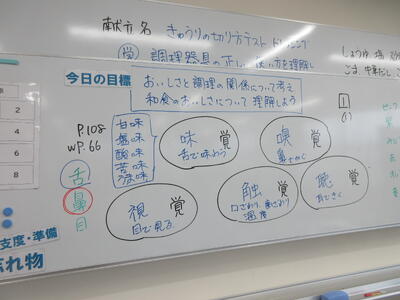 献立名 きゅうりの切り方テスト ドレッシング
学 調理器具の正しい使い方を理解し
しょうゆ 塩
ごま、中華だし
今日の目標
おいしさと調理の関係について考え
和食のおいしさについて理解しよう
P.108
WP.66
甘味
塩味
酸味
苦味
旨味
味覚
舌で味わう
嗅覚
鼻でかぐ
1
(1)
舌
鼻
目
視覚
目で見る
触覚
口ざわり、歯ざわり
温度
聴覚
耳できく
支度・準備
忘れ物
2
4
6
8